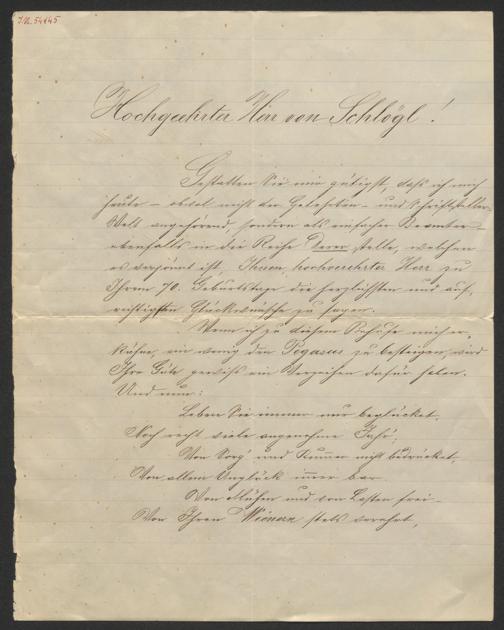 I.N. 54445
Hochgeehrter Herr von Schlögl!
Gestatten Sie mir gütigst, daß ich mich
heute – obwol nicht der Gelehrten- und Schriftsteller-
Welt angehörend, sondern als einfacher Beamter –
ebenfalls in die Reihe Derer stelle, welchen
es vergönnt ist, Ihnen, hochverehrter Herr zu
Ihrem 70. Geburtstage die herzlichsten und auf-
richtigsten Glückwünsche zu sagen.
Wenn ich zu diesem Behufe mich er-
kühne, ein wenig den Pegasus zu besteigen, wird
Ihre Güte gewiß ein Verzeihen dafür haben.
Und nun:
Leben Sie immer nur beglücket,
Noch recht viele angenehme Jahr';
Von Sorg' und Kummer nicht bedrücket,
Von allem Unglück immer bar.
Von Mühen und von Lasten frei –
Von Ihren Wienern stets verehrt,